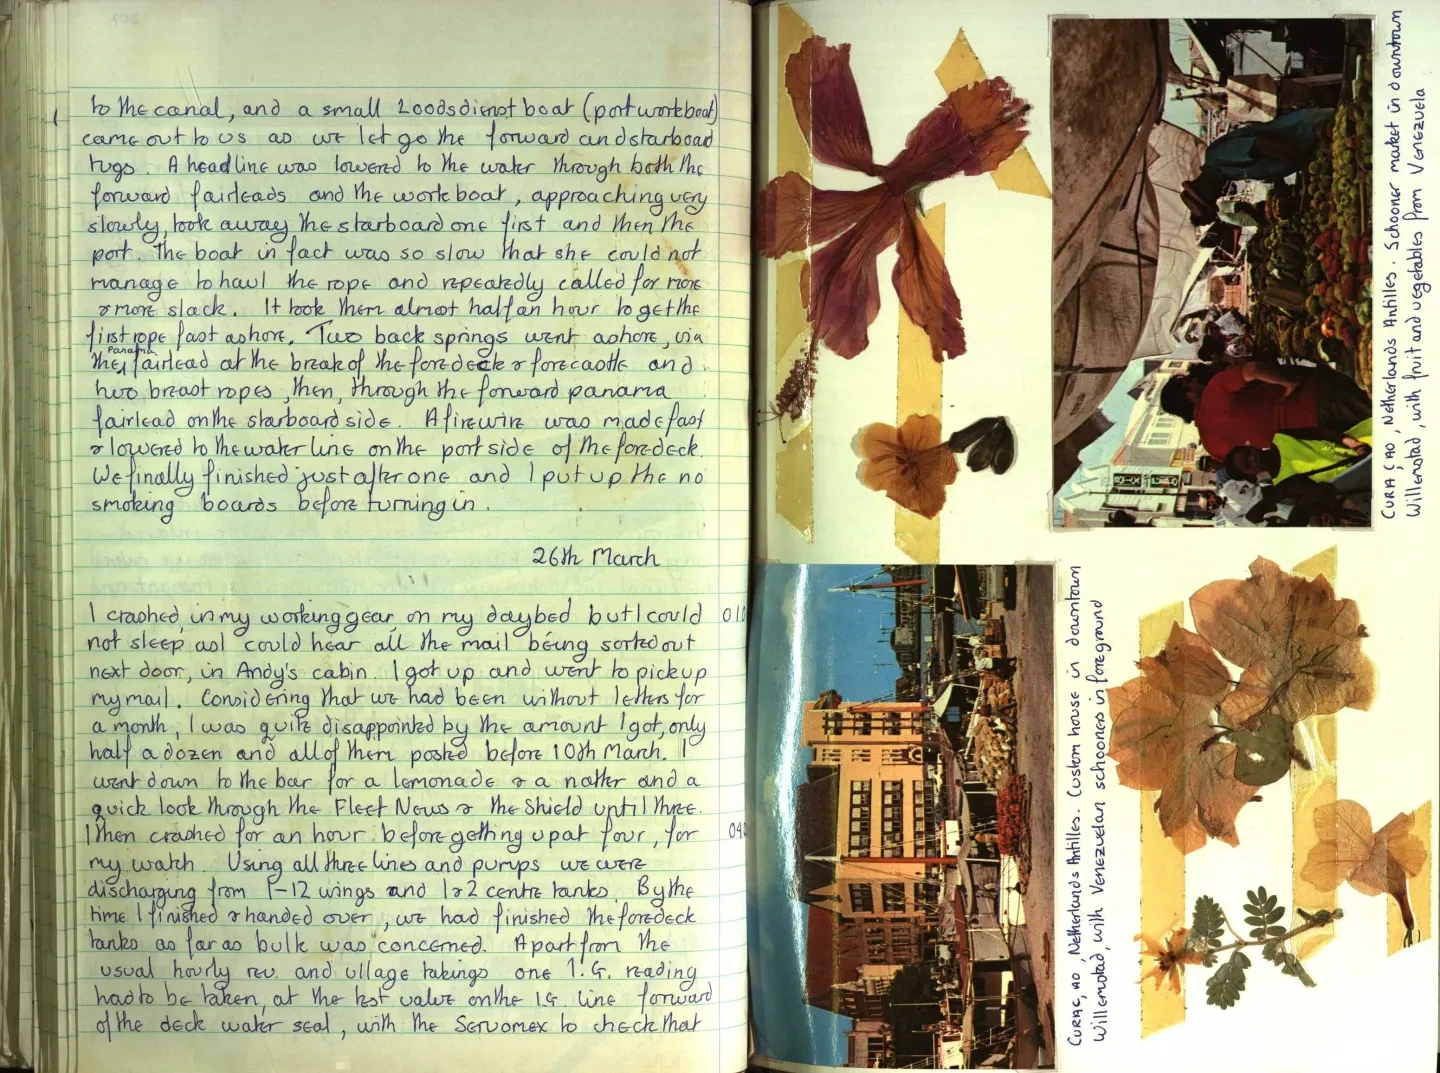 to the canal, and a small Loodsdienst boat (port workboat)
came out to us as we let go the forward and starboard
tugs. A headline was lowered to the water through both the
forward fairleads and the workboat, approaching very
slowly, took away the starboard one first and then the
port. The boat in fact was so slow that she could not
manage to haul the rope and repeatedly called for more
& more slack. It took them almost half an hour to get the
first rope fast ashore. Two back springs went ashore, via
the Panama fairlead at the break of the foredeck & forecastle and
two breast ropes, then, through the forward panama
fairlead on the starboard side. A firewire was made fast
& lowered to the waterline on the port side of the foredeck.
We finally finished just after one and I put up the no
smoking boards before turning in.
26th March
I crashed, in my working gear, on my daybed but I could
not sleep as I could hear all the mail being sorted out
next door, in Andy's cabin. I got up and went to pick up
my mail. Considering that we had been without letters for
a month, I was quite disappointed by the amount I got, only
half a dozen and all of them posted before 10th March. I
went down to the bar for a lemonade & a natter and a
quick look through the Fleet News & the Shield until three.
I then crashed for an hour before getting up at four, for
my watch. Using all three lines and pumps we were
discharging from 1-12 wings and 1 & 2 centre tanks. By the
time I finished & handed over, we had finished the foredeck
tanks as far as bulk was concerned. Apart from the
usual hourly rev. and ullage takings one I.G. reading
had to be taken, at the test valve on the I.G. line forward
of the deck water seal, with the Servomex to check that
CURAÇAO, Netherlands Antilles. Schooner market in downtown
Willemstad, with fruit and vegetables from Venezuela.
CURAÇAO, Netherlands Antilles. Custom house in downtown
Willemstad, with Venezuelan schooners in foreground